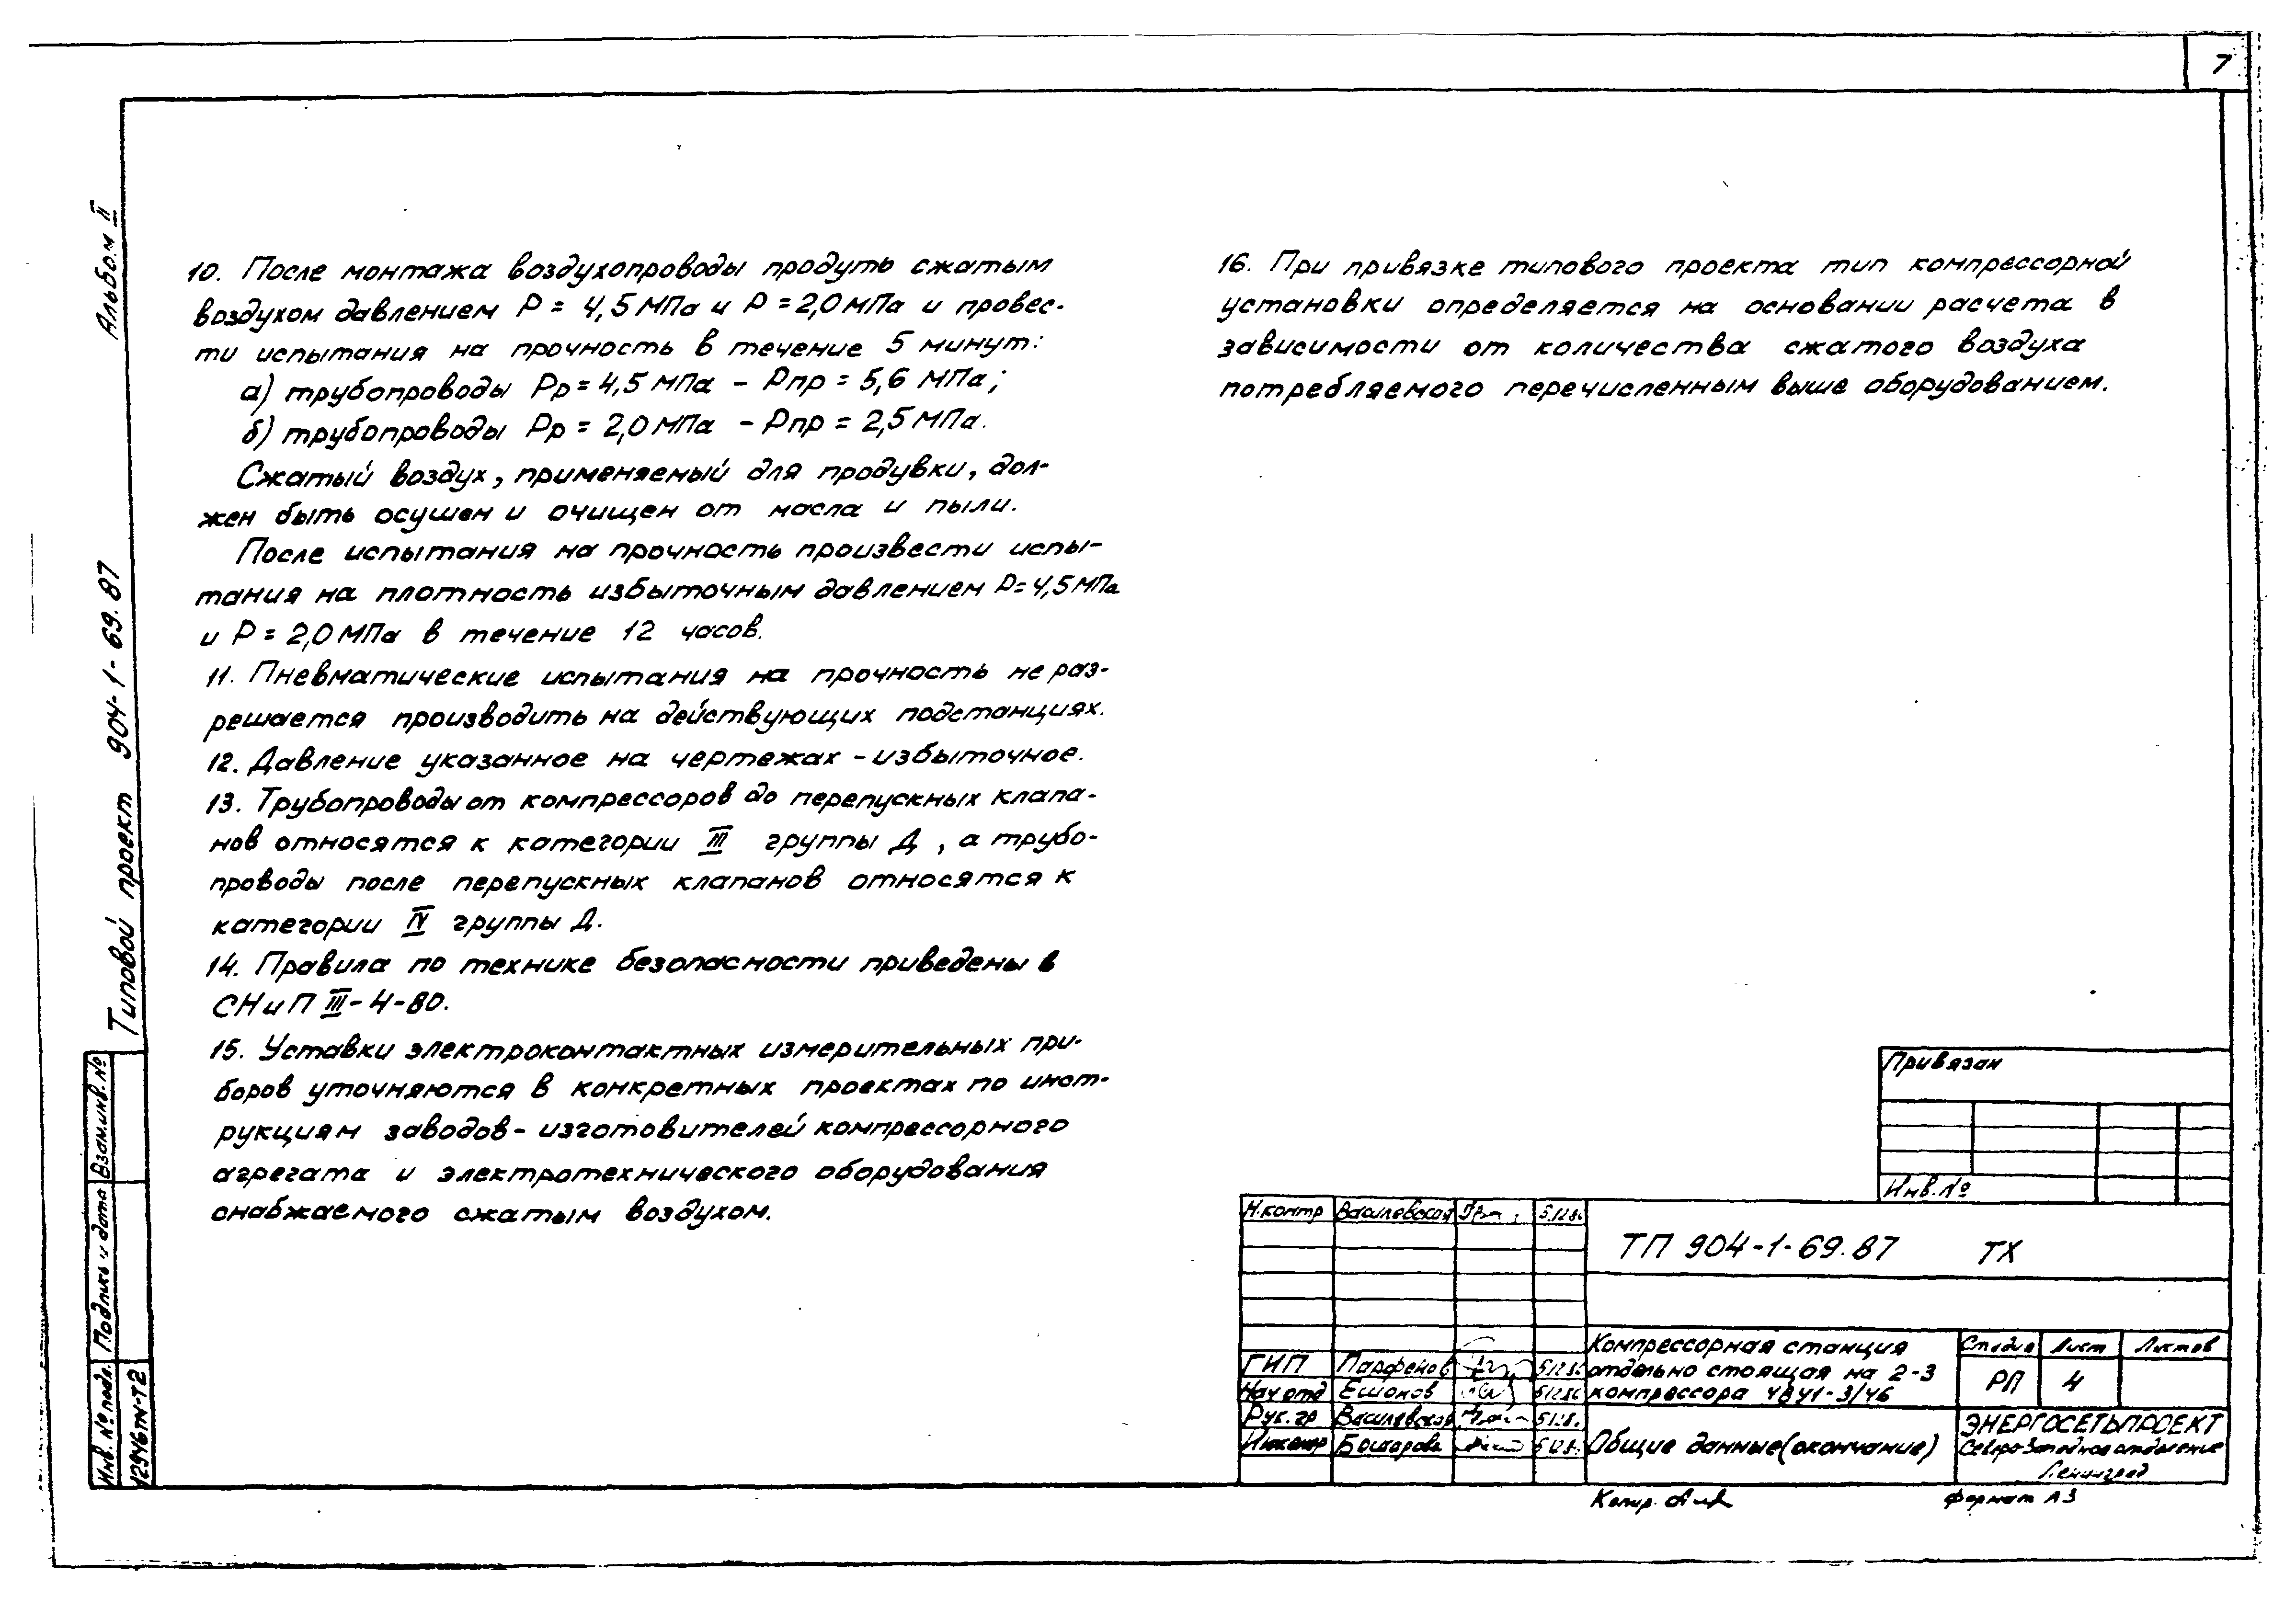 7
Альбом II
Типовой проект 904-1-69.87
10. После монтажа воздухопроводы продуть сжатым
воздухом давлением Р = 4,5 МПа и Р = 2,0 МПа и провес-
ти испытания на прочность в течение 5 минут:
а) трубопроводы Рр = 4,5 МПа - Рпр = 5,6 МПа;
б) трубопроводы Рр = 2,0 МПа - Рпр = 2,5 МПа.
Сжатый воздух, применяемый для продувки, дол-
жен быть осушен и очищен от масла и пыли.
После испытания на прочность произвести испы-
тания на плотность избыточным давлением Р = 4,5 МПа
и Р = 2,0 МПа в течение 12 часов.
11. Пневматические испытания на прочность не раз-
решается производить на действующих подстанциях.
12. Давление указанное на чертежах - избыточное.
13. Трубопроводы от компрессоров до перепускных клапа-
нов относятся к категории III группы Д, а трубо-
проводы после перепускных клапанов относятся к
категории IV группы Д.
14. Правила по технике безопасности приведены в
СНиП III-4-80.
15. Уставки электроконтактных измерительных при-
боров уточняются в конкретных проектах по инст-
рукциям заводов-изготовителей компрессорного
агрегата и электротехнического оборудования
снабжаемого сжатым воздухом.
16. При привязке типового проекта тип компрессорной
установки определяется на основании расчета в
зависимости от количества сжатого воздуха
потребляемого перечисленным выше оборудованием.
Привязан
Инв. №
Н.контр Василевская 5.12.86
ТП 904-1-69.87 ТХ
ГИП Парфенов 5.12.86
Нач отд Ешонов 5.12.86
Рук. гр Василевская
Инженер
Компрессорная станция
отдельно стоящая на 2-3
компрессора 4ВУ1-3/46
Стадия Лист Листов
РП 4
Общие данные (окончание)
ЭНЕРГОСЕТЬПРОЕКТ
Северо-Западное отделение
Ленинград
Копир.
Формат А3
Взам.инв. №
Подпись и дата
Инв. № подл.
12946тм-т2